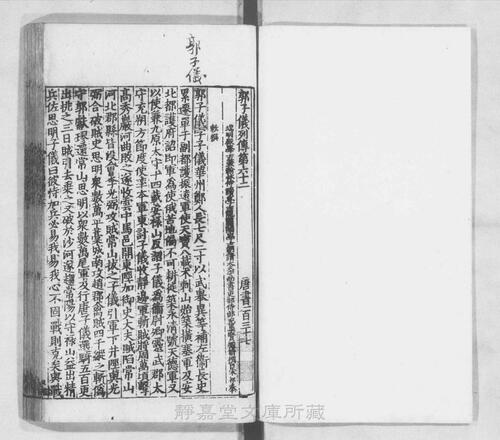 郭子儀
郭子儀列傳第六十二　唐書一百三十七
端明殿學士兼翰林侍讀學士龍圖閣學士朝請大夫守尚書吏部侍郎充集賢殿修撰臣宋祁奉
敕撰
郭子儀字子儀華州鄭人長七尺二寸以武舉異等補左衛長史
累遷單于副都護振遠軍使天寶八載木剌山始築橫塞軍及安
北都護府詔即軍為使俄苦地偏不可耕徙築永清號天德軍又
以使兼九原太守十四載安祿山反詔子儀為衛尉卿靈武郡太
守充朔方節度使率本軍東討子儀收靜邊軍斬賊將周萬頃擊
高秀巖河曲敗之遂收雲中馬邑開東陘加御史大夫賊陷常山
河北郡縣皆沒會李光弼攻賊常山拔之子儀引軍下井陘與光
弼合破賊史思明衆數萬平藁城南攻趙郡禽賊四千縱之斬偽
守郭獻璆還常山思明以衆數萬尾軍及行唐子儀選騎五百更
出挑之三日賊引去乘之又破於沙河遂趨常陽以守祿山益出精
兵佐思明子儀曰彼恃加兵必易我易我心不固戰則克矣與戰
靜嘉堂文庫所藏